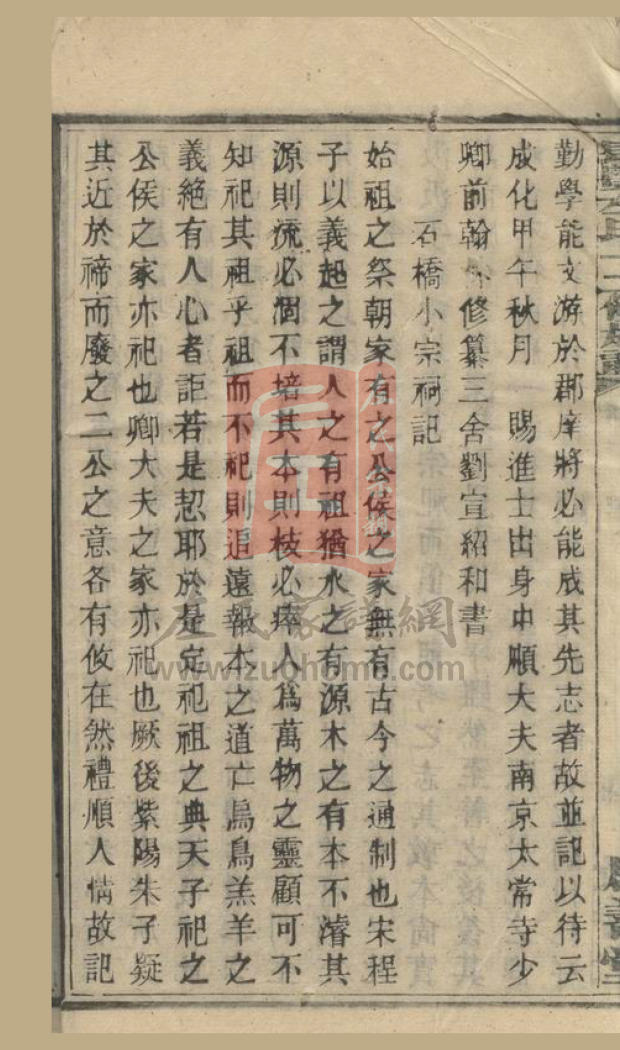 勤學能文游於郡庠將必能成其先志者故並記以待云
成化甲午秋月 賜進士出身中順大夫南京太常寺少
卿前翰 修纂三舍劉宣紹和書
石橋小宗祠記
始祖之祭朝家有之公侯之家無有古今之通制也宋程
子以義起之謂人之有祖猶水之有源木之有本不濬其
源則流必涸不培其本則枝必瘁人為萬物之靈顧可不
知祀其祖乎祖而不祀則追遠報本之道亡烏鳥羔羊之
義絕有人心者詎若是恝耶於是定祀祖之典天子祀之
公侯之家亦祀也卿大夫之家亦祀也厥後紫陽朱子疑
其近於禘而廢之二公之意各有攸在然禮順人情故記
左氏家譜網
www.zuohome.com